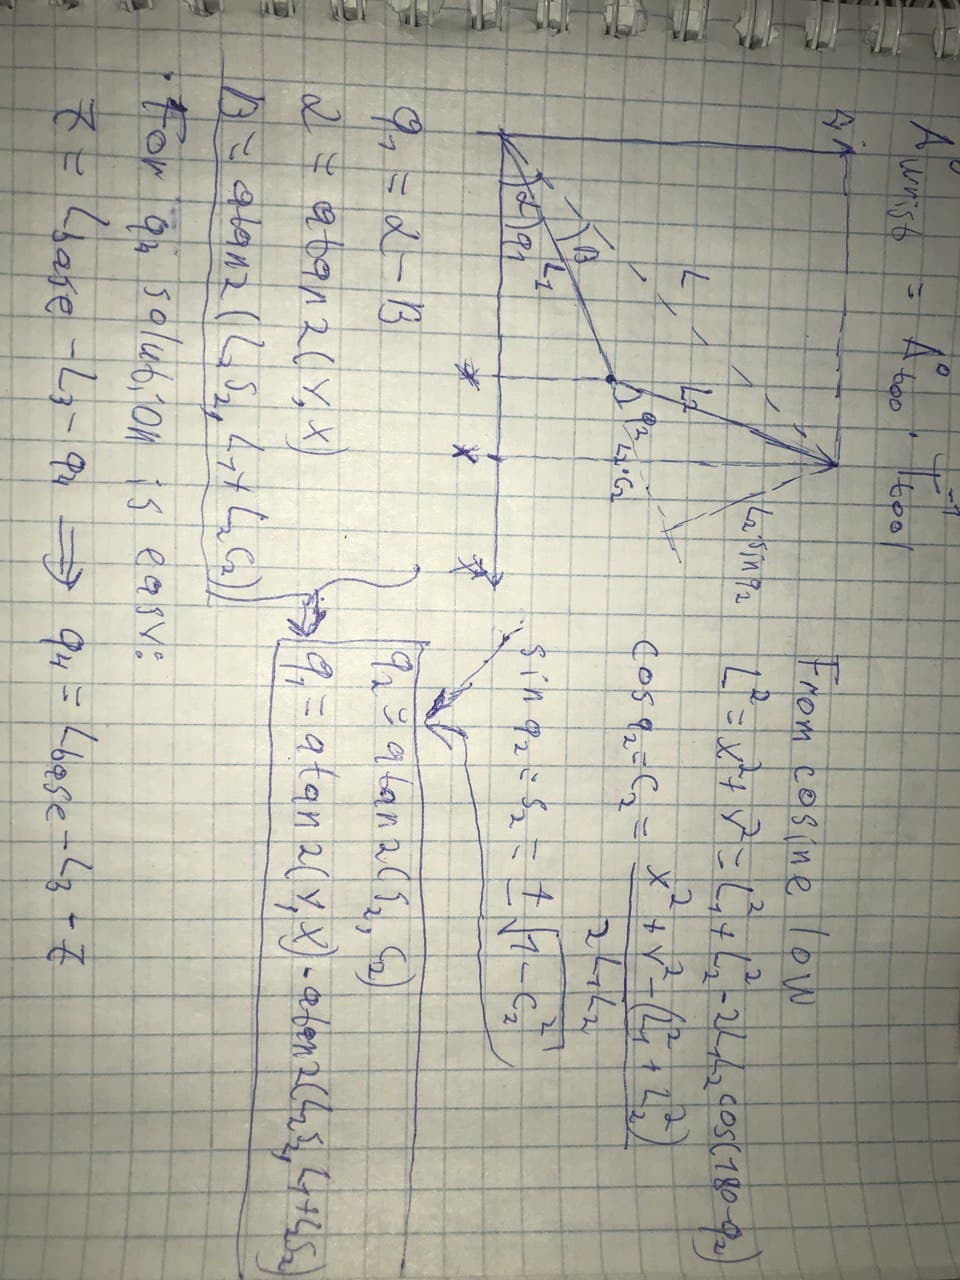 A⁰wrist = A⁰too · T⁻¹tool
Y
L₂·sin q₂
L
L₂
q₂
L₂·C₂
B
L₁
α
q₁
X
From cosine low
L² = x² + Y² = L₁² + L₂² - 2L₁L₂ cos(180-q₂)
cos q₂ = C₂ = (x² + Y² - (L₁² + L₂²)) / (2L₁L₂)
sin q₂ = S₂ = ± √(1 - C₂²)
q₁ = α - B
α = atan2(Y, X)
B = atan2(L₂S₂, L₁ + L₂C₂)
q₂ = atan2(S₂, C₂)
q₁ = atan2(Y, X) - atan2(L₂S₂, L₁+L₂S₂)
· For q₄ solution is easy:
Z = Lbase - L₃ - q₄ ⟹ q₄ = Lbase - L₃ - Z